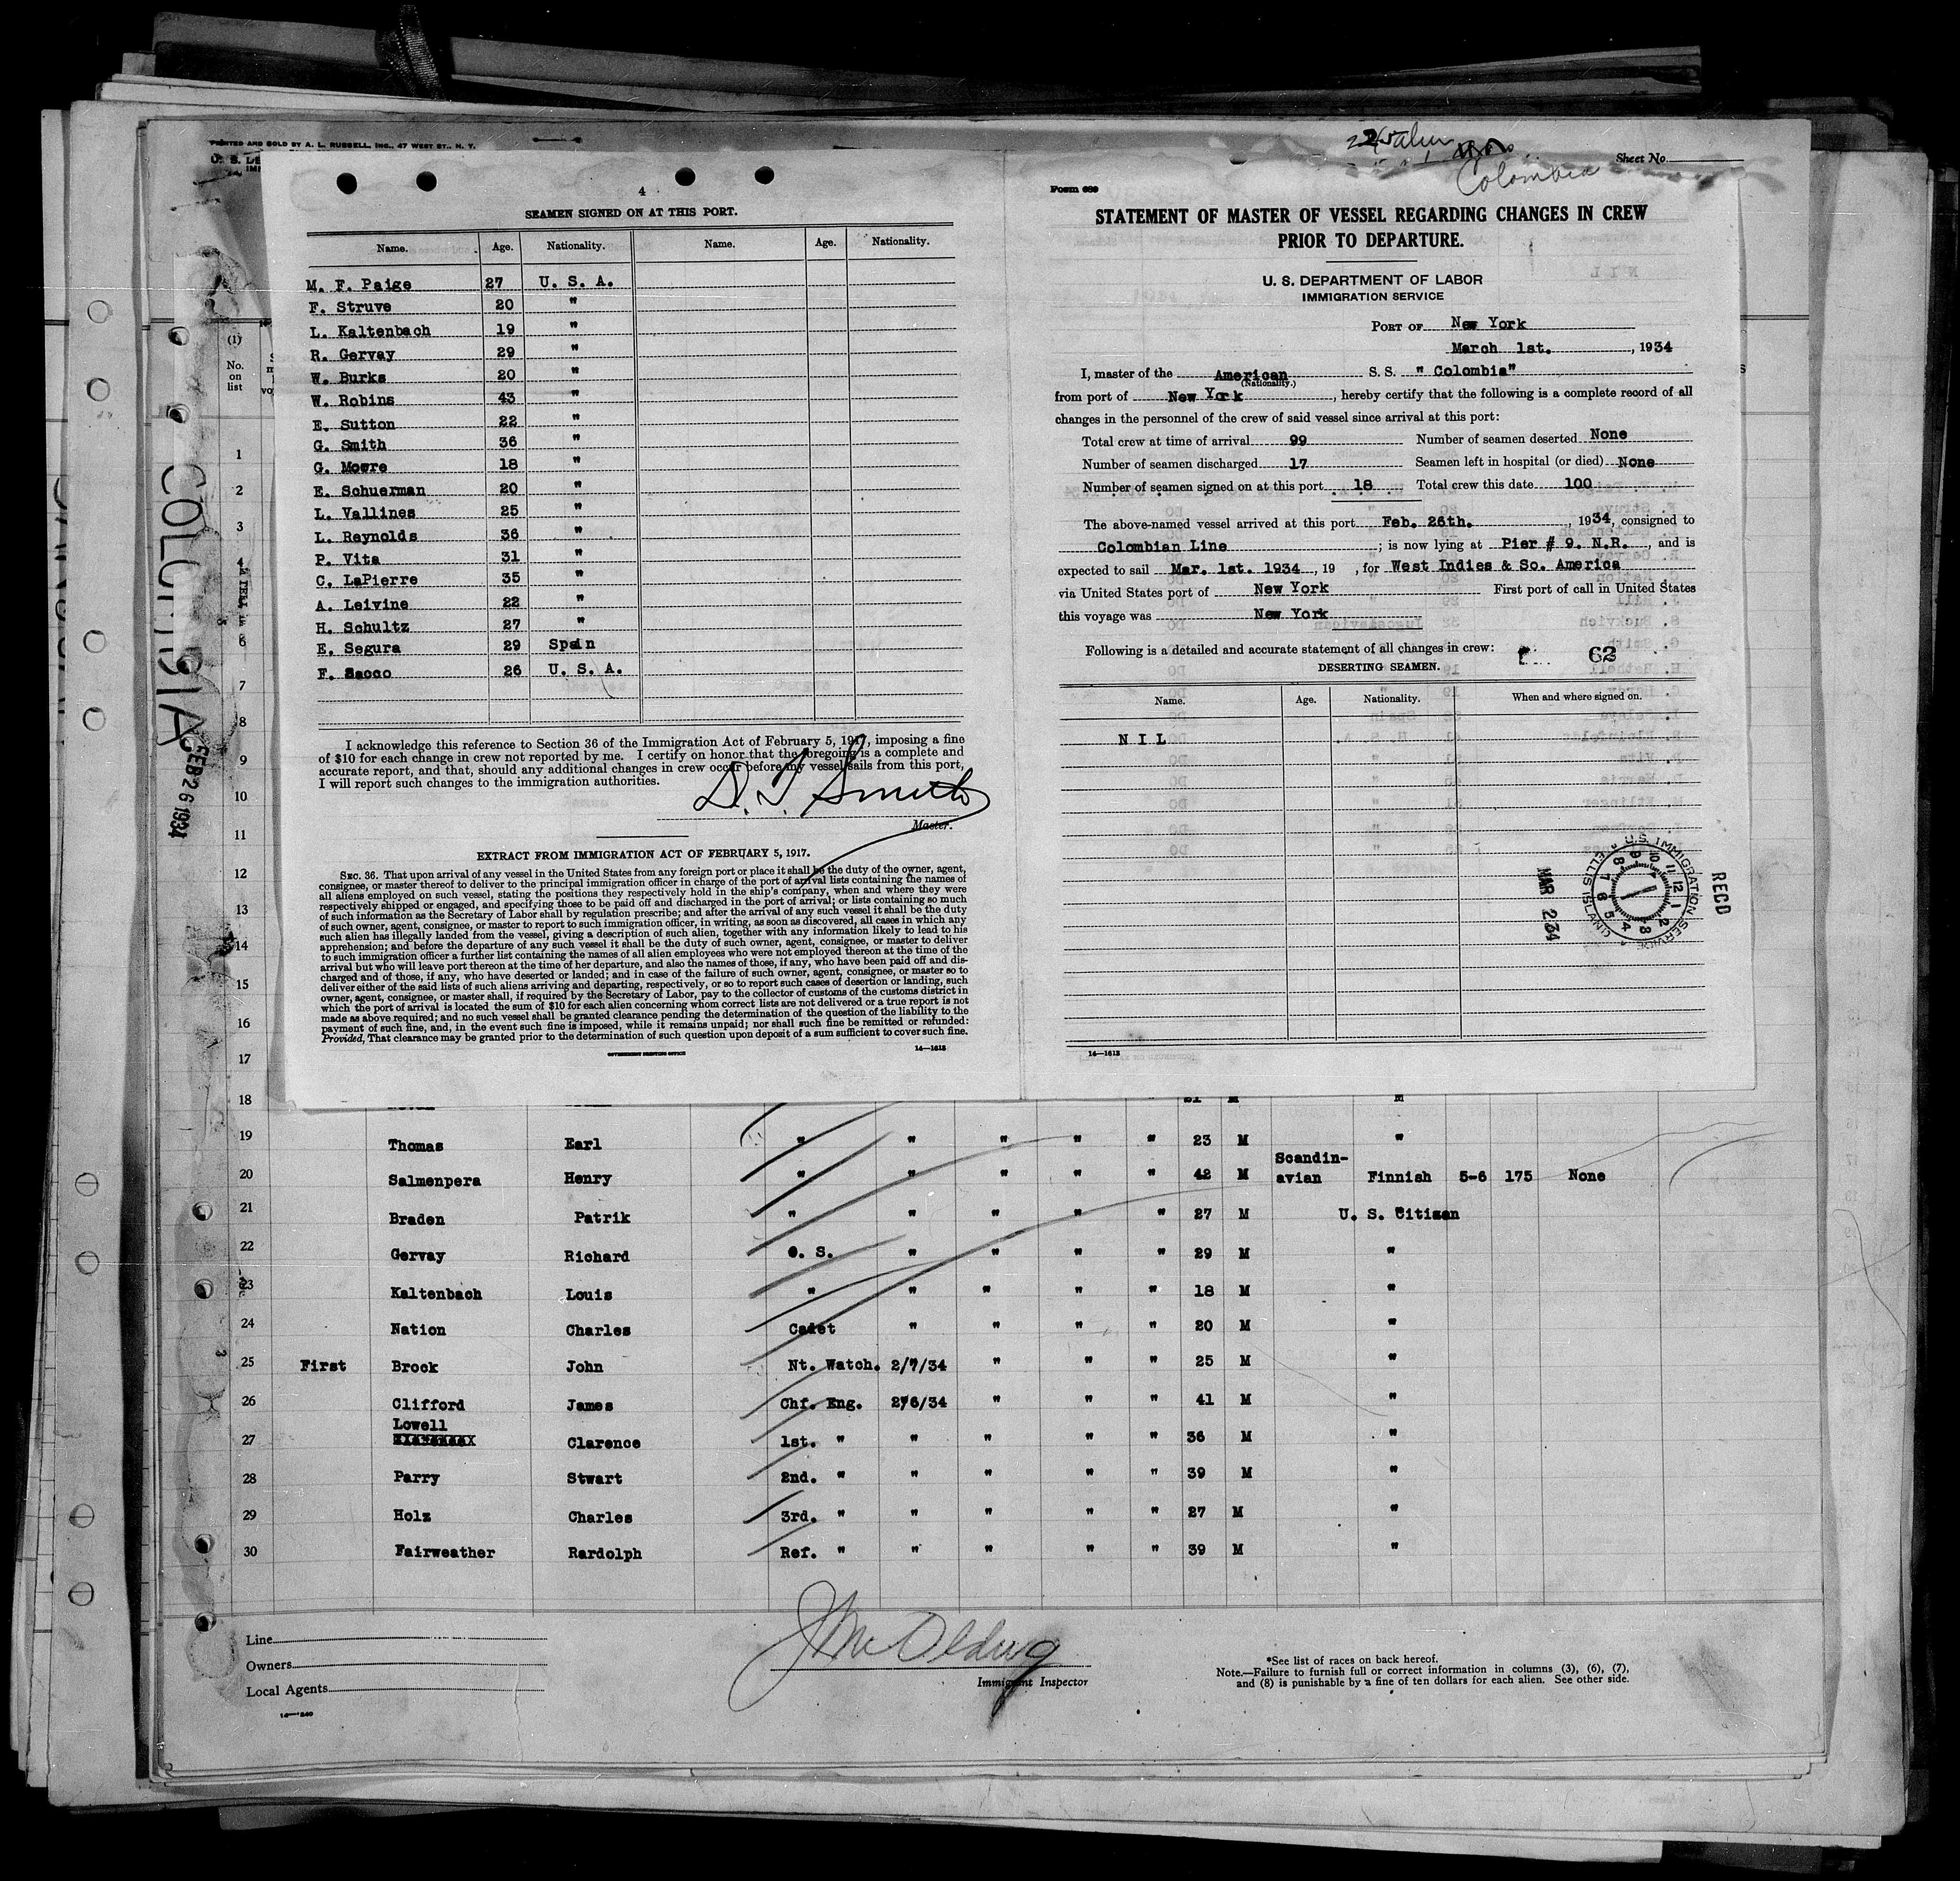 PRINTED AND SOLD BY A. L. RUSSELL, INC., 47 WEST ST., N. Y.
Colombia
Sheet No.
4
SEAMEN SIGNED ON AT THIS PORT.
Name. Age. Nationality. Name. Age. Nationality.
M. F. Paige 27 U. S. A.
F. Struve 20 "
L. Kaltenbach 19 "
R. Gervay 29 "
W. Burks 20 "
W. Robins 43 "
E. Sutton 22 "
G. Smith 36 "
G. Mowre 18 "
E. Schuerman 20 "
L. Vallines 25 "
L. Reynolds 36 "
P. Vita 31 "
C. LaPierre 35 "
A. Leivine 22 "
H. Schultz 27 "
E. Segura 29 Spain
F. Sacco 26 U. S. A.
I acknowledge this reference to Section 36 of the Immigration Act of February 5, 1917, imposing a fine
of $10 for each change in crew not reported by me. I certify on honor that the foregoing is a complete and
accurate report, and that, should any additional changes in crew occur before my vessel sails from this port,
I will report such changes to the immigration authorities.
D. T. Smith
Master.
EXTRACT FROM IMMIGRATION ACT OF FEBRUARY 5, 1917.
SEC. 36. That upon arrival of any vessel in the United States from any foreign port or place it shall be the duty of the owner, agent,
consignee, or master thereof to deliver to the principal immigration officer in charge of the port of arrival lists containing the names of
all aliens employed on such vessel, stating the positions they respectively hold in the ship's company, when and where they were
respectively shipped or engaged, and specifying those to be paid off and discharged in the port of arrival; or lists containing so much
of such information as the Secretary of Labor shall by regulation prescribe; and after the arrival of any such vessel it shall be the duty
of such owner, agent, consignee, or master to report to such immigration officer, in writing, as soon as discovered, all cases in which any
such alien has illegally landed from the vessel, giving a description of such alien, together with any information likely to lead to his
apprehension; and before the departure of any such vessel it shall be the duty of such owner, agent, consignee, or master to deliver
to such immigration officer a further list containing the names of all alien employees who were not employed thereon at the time of the
arrival but who will leave port thereon at the time of her departure, and also the names of those, if any, who have been paid off and dis-
charged and of those, if any, who have deserted or landed; and in case of the failure of such owner, agent, consignee, or master so to
deliver either of the said lists of such aliens arriving and departing, respectively, or so to report such cases of desertion or landing, such
owner, agent, consignee, or master shall, if required by the Secretary of Labor, pay to the collector of customs of the customs district in
which the port of arrival is located the sum of $10 for each alien concerning whom correct lists are not delivered or a true report is not
made as above required; and no such vessel shall be granted clearance pending the determination of the question of the liability to the
payment of such fine, and, in the event such fine is imposed, while it remains unpaid; nor shall such fine be remitted or refunded:
Provided, That clearance may be granted prior to the determination of such question upon deposit of a sum sufficient to cover such fine.
GOVERNMENT PRINTING OFFICE 14—1613
Form 689
STATEMENT OF MASTER OF VESSEL REGARDING CHANGES IN CREW
PRIOR TO DEPARTURE.
U. S. DEPARTMENT OF LABOR
IMMIGRATION SERVICE
PORT OF New York
March 1st. , 1934
I, master of the American S. S. " Colombia"
(Nationality.)
from port of New York , hereby certify that the following is a complete record of all
changes in the personnel of the crew of said vessel since arrival at this port:
Total crew at time of arrival 99 Number of seamen deserted None
Number of seamen discharged 17 Seamen left in hospital (or died) None
Number of seamen signed on at this port 18 Total crew this date 100
The above-named vessel arrived at this port Feb. 26th. , 1934, consigned to
Colombian Line ; is now lying at Pier # 9. N.R. , and is
expected to sail Mar. 1st. 1934 , 19 , for West Indies & So. America
via United States port of New York First port of call in United States
this voyage was New York
Following is a detailed and accurate statement of all changes in crew: 62
DESERTING SEAMEN.
Name. Age. Nationality. When and where signed on.
N I L
14—1613
RECD
U.S. IMMIGRATION SERVICE
ELLIS ISLAND
MAR 2 34
COLOMBIA
FEB 26 1934
(1)
No.
on
list
1
2
3
4
6
7
8
9
10
11
12
13
14
15
16
17
18
19 Thomas Earl " " " " " 23 M "
20 Salmenpera Henry " " " " " 42 M Scandin-avian Finnish 5-6 175 None
21 Braden Patrik " " " " " 27 M U. S. Citizen
22 Gervay Richard O. S. " " " " 29 M "
23 Kaltenbach Louis " " " " " 18 M "
24 Nation Charles Cadet " " " " 20 M "
25 First Brock John Nt. Watch. 2/7/34 " " " 25 M "
26 Clifford James Chf. Eng. 2/6/34 " " " 41 M "
27 Lowell Clarence 1st. " " " " " 36 M "
28 Parry Stwart 2nd. " " " " " 39 M "
29 Holz Charles 3rd. " " " " " 27 M "
30 Fairweather Rardolph Ref. " " " " " 39 M "
Line
Owners
Local Agents
Immigrant Inspector
*See list of races on back hereof.
Note.—Failure to furnish full or correct information in columns (3), (6), (7),
and (8) is punishable by a fine of ten dollars for each alien. See other side.